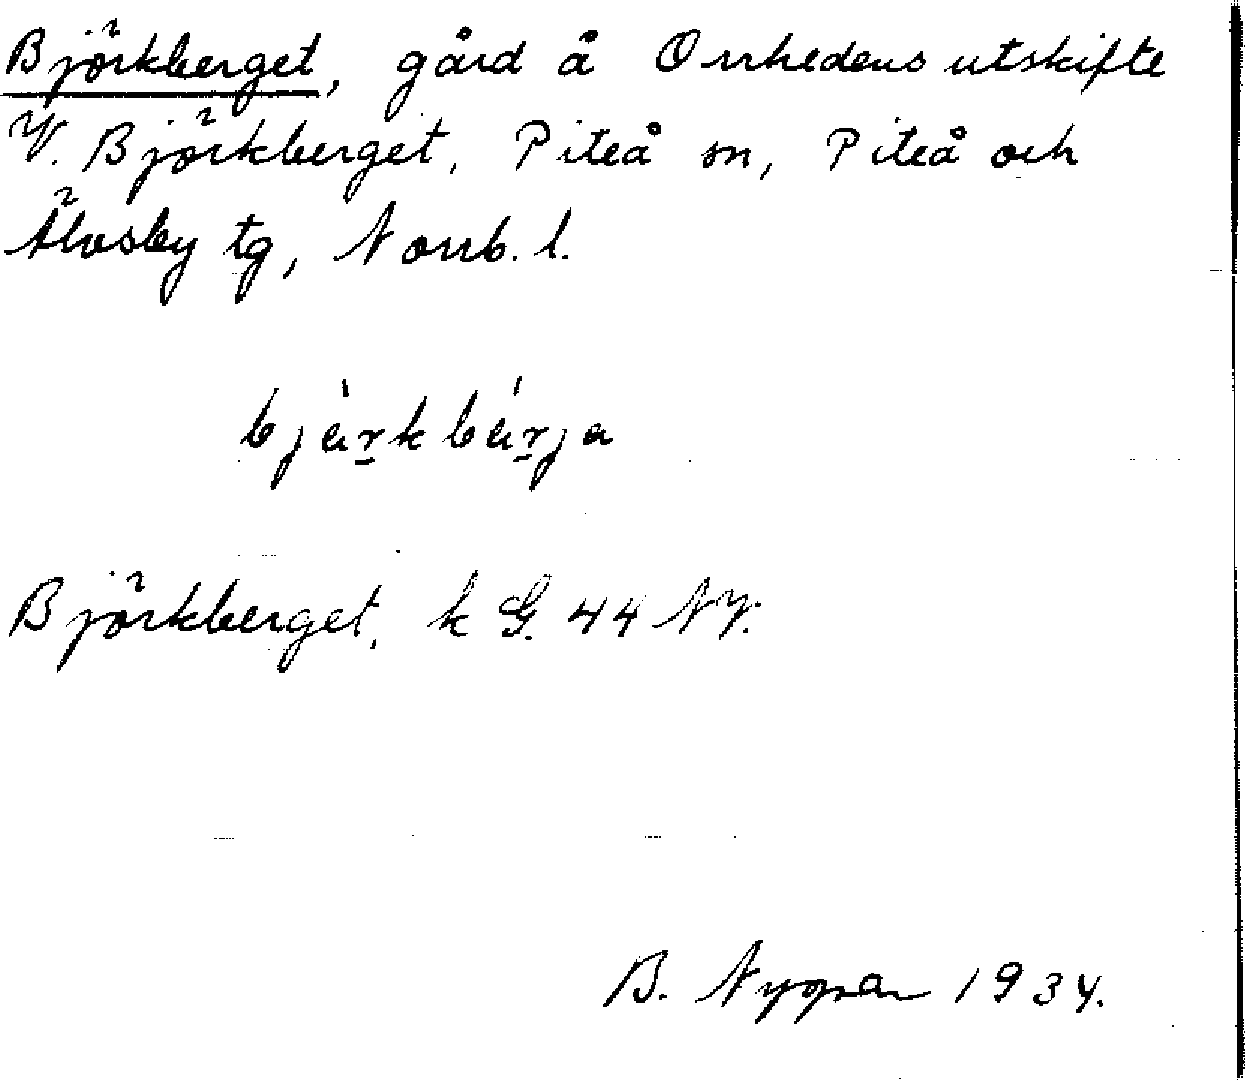 Björkberget, gård å Orrhedens utskifte
V. Björkberget, Piteå sn, Piteå och
Älvsby tg, Norrb. l.
Björkberget, k G. 44 NV.
B. 1934.